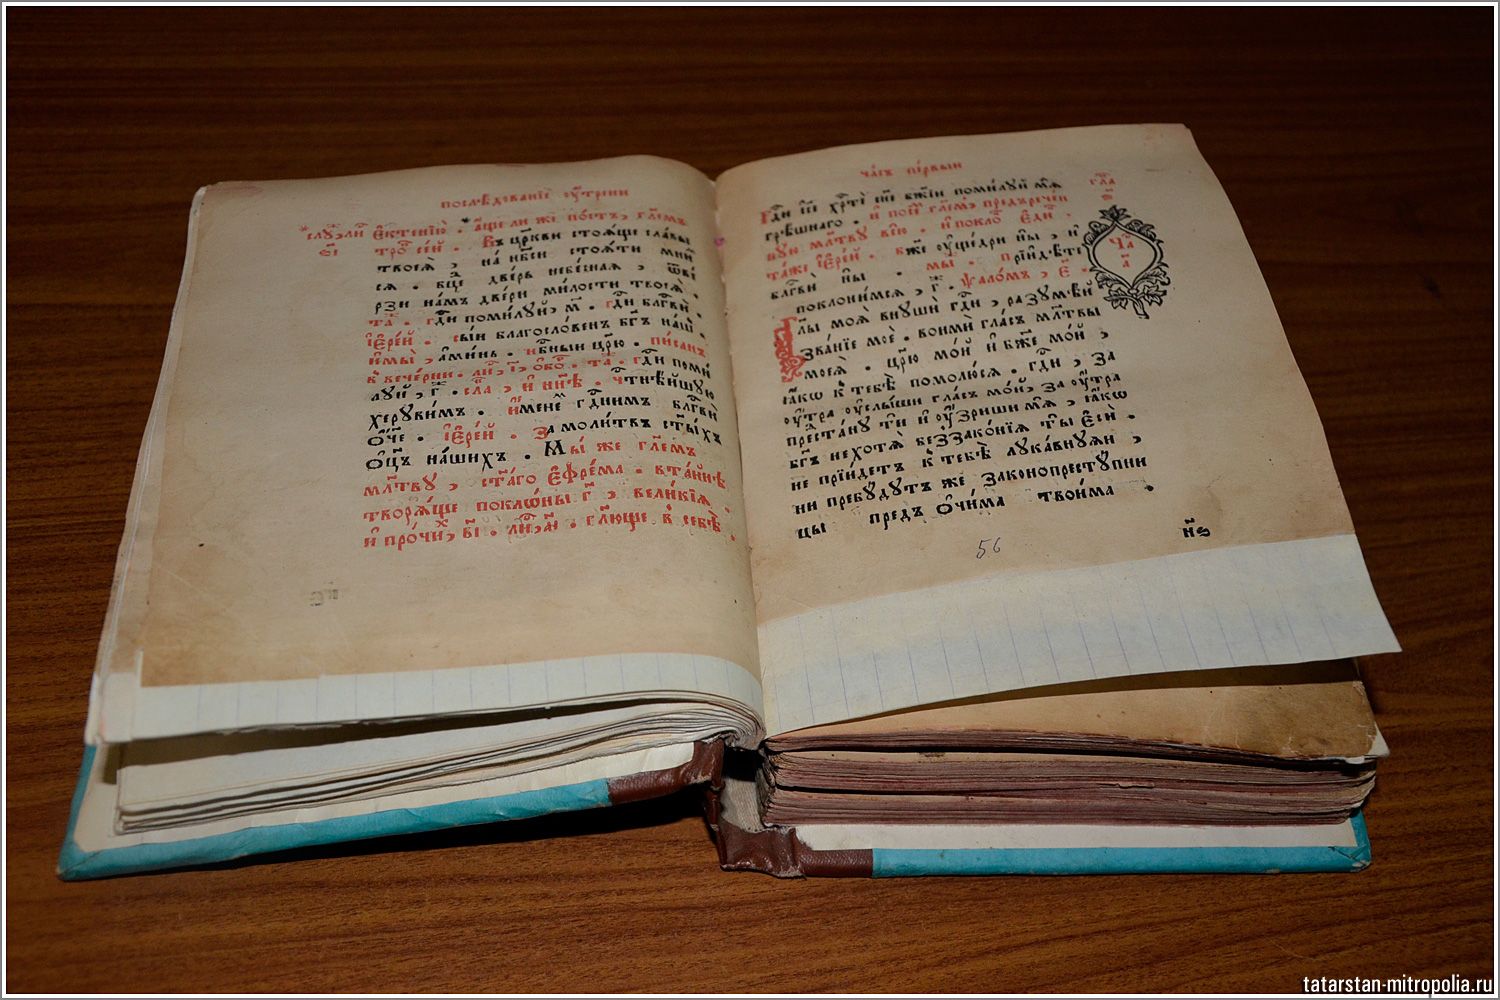 послѣдованїе ᲂу҆́трени
* слꙋ́жи́тъ є҆ктенїю̀ . * а҆́ще ли же по́стъ , гл҃емъ
тро҃ сей . Въ цр҃кви стоѧ́ще сла́вы
твоеѧ̀ , на нб҃си стоѧ́ти мни́м
сѧ . бц҃е две́рь небе́снаѧ , ѿве́
рзи на́мъ две́ри ми́лости твоеѧ̀ .
та́ж . гдⷭ҇и поми́лꙋй , м҃ . гдⷭ҇и блгⷭ҇ви .
і҆ере́й . сы́й благослове́нъ бг҃ъ на́шъ .
и҆ мы̀ , а҆ми́нь . нбⷭ҇ный цр҃ю̀ . пи́санъ
в вече́рни
лꙋй , г҃ . сла́ , и҆ ны́нѣ . чтⷭ҇нѣ́йшꙋю
херꙋви́мъ . и҆́менемъ гдⷭ҇нимъ блгⷭ҇ви
ѻ҆́ч҃е . і҆ере́й . За моли́твъ ст҃ы́хъ
ѻ҆ц҃ъ на́шихъ . Мы́ же гл҃емъ
мл҃твꙋ , ст҃а́го є҆фре́ма . в та́йнѣ
творѧ́ще покло́ны г҃ , вели́кїѧ .
и҆ про́чих , в҃і . гл҃юще в себѣ̀ .
ча́съ пе́рвый
гдⷭ҇и і҆с҃ хрⷭ҇тѐ сн҃е бж҃їй поми́лꙋй мѧ̀
грѣ́шнаго . и҆ по не́м гл҃емъ предърече́н
нꙋю мл҃твꙋ всю̀ . и҆ покло́ є҆ди́н .
та́же і҆ере́й . бж҃е ᲂу҆ще́дри ны̀ , и҆
блгⷭ҇ви ны̀ . мы̀ . прїиди́те
поклони́мсѧ , г҃ . ѱало́мъ , є҃ .
Гл҃ы моѧ̀ внꙋшѝ гдⷭ҇и , разꙋмѣ́й
зва́нїе моѐ . вонмѝ гла́съ мл҃твы
моеѧ̀ . цр҃ю̀ мо́й и҆ бж҃е мо́й ,
ꙗ҆́кѡ к тебѣ̀ помолю́сѧ . гдⷭ҇и , за
ᲂу҆́тра ᲂу҆слы́ши гла́съ мо́й , за ᲂу҆́тра
преста́нꙋ тѝ и҆ ᲂу҆́зриши мѧ̀ , ꙗ҆́кѡ
бг҃ъ не хотѧ̀ беззако́нїѧ ты̀ є҆сѝ .
не прїи́детъ к тебѣ̀ лꙋка́внꙋѧи ,
ни пребꙋ́дꙋтъ же законопрестꙋ́пни
цы предъ ѻ҆чи́ма твои́ма .
гла́
ѕ҃
Ча́
а҃
н҃ѕ
56
tatarstan-mitropolia.ru